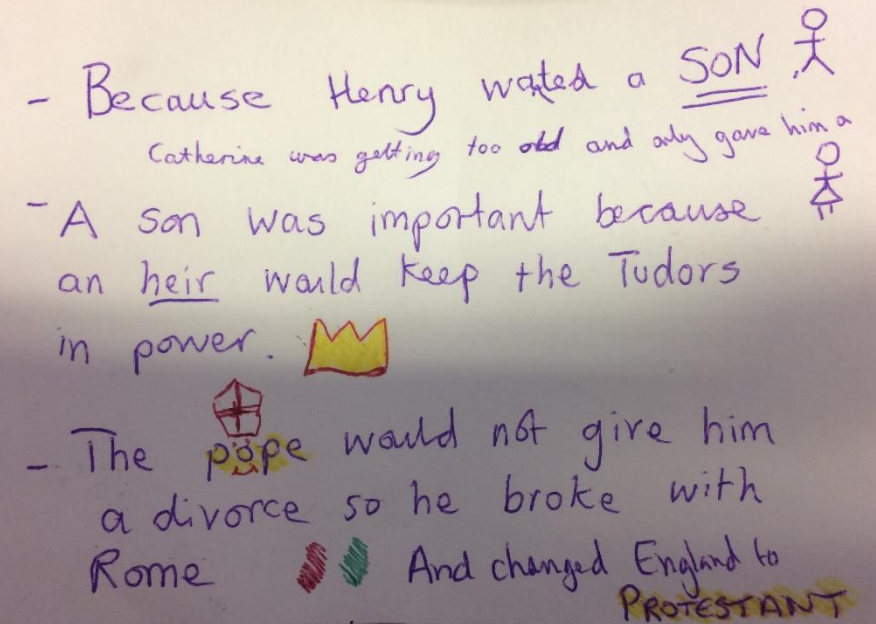 - Because Henry wated a SON
Catherine was getting too old and only gave him a
- A son was important because
an heir would keep the Tudors
in power.
- The pope would not give him
a divorce so he broke with
Rome And changed England to
PROTESTANT